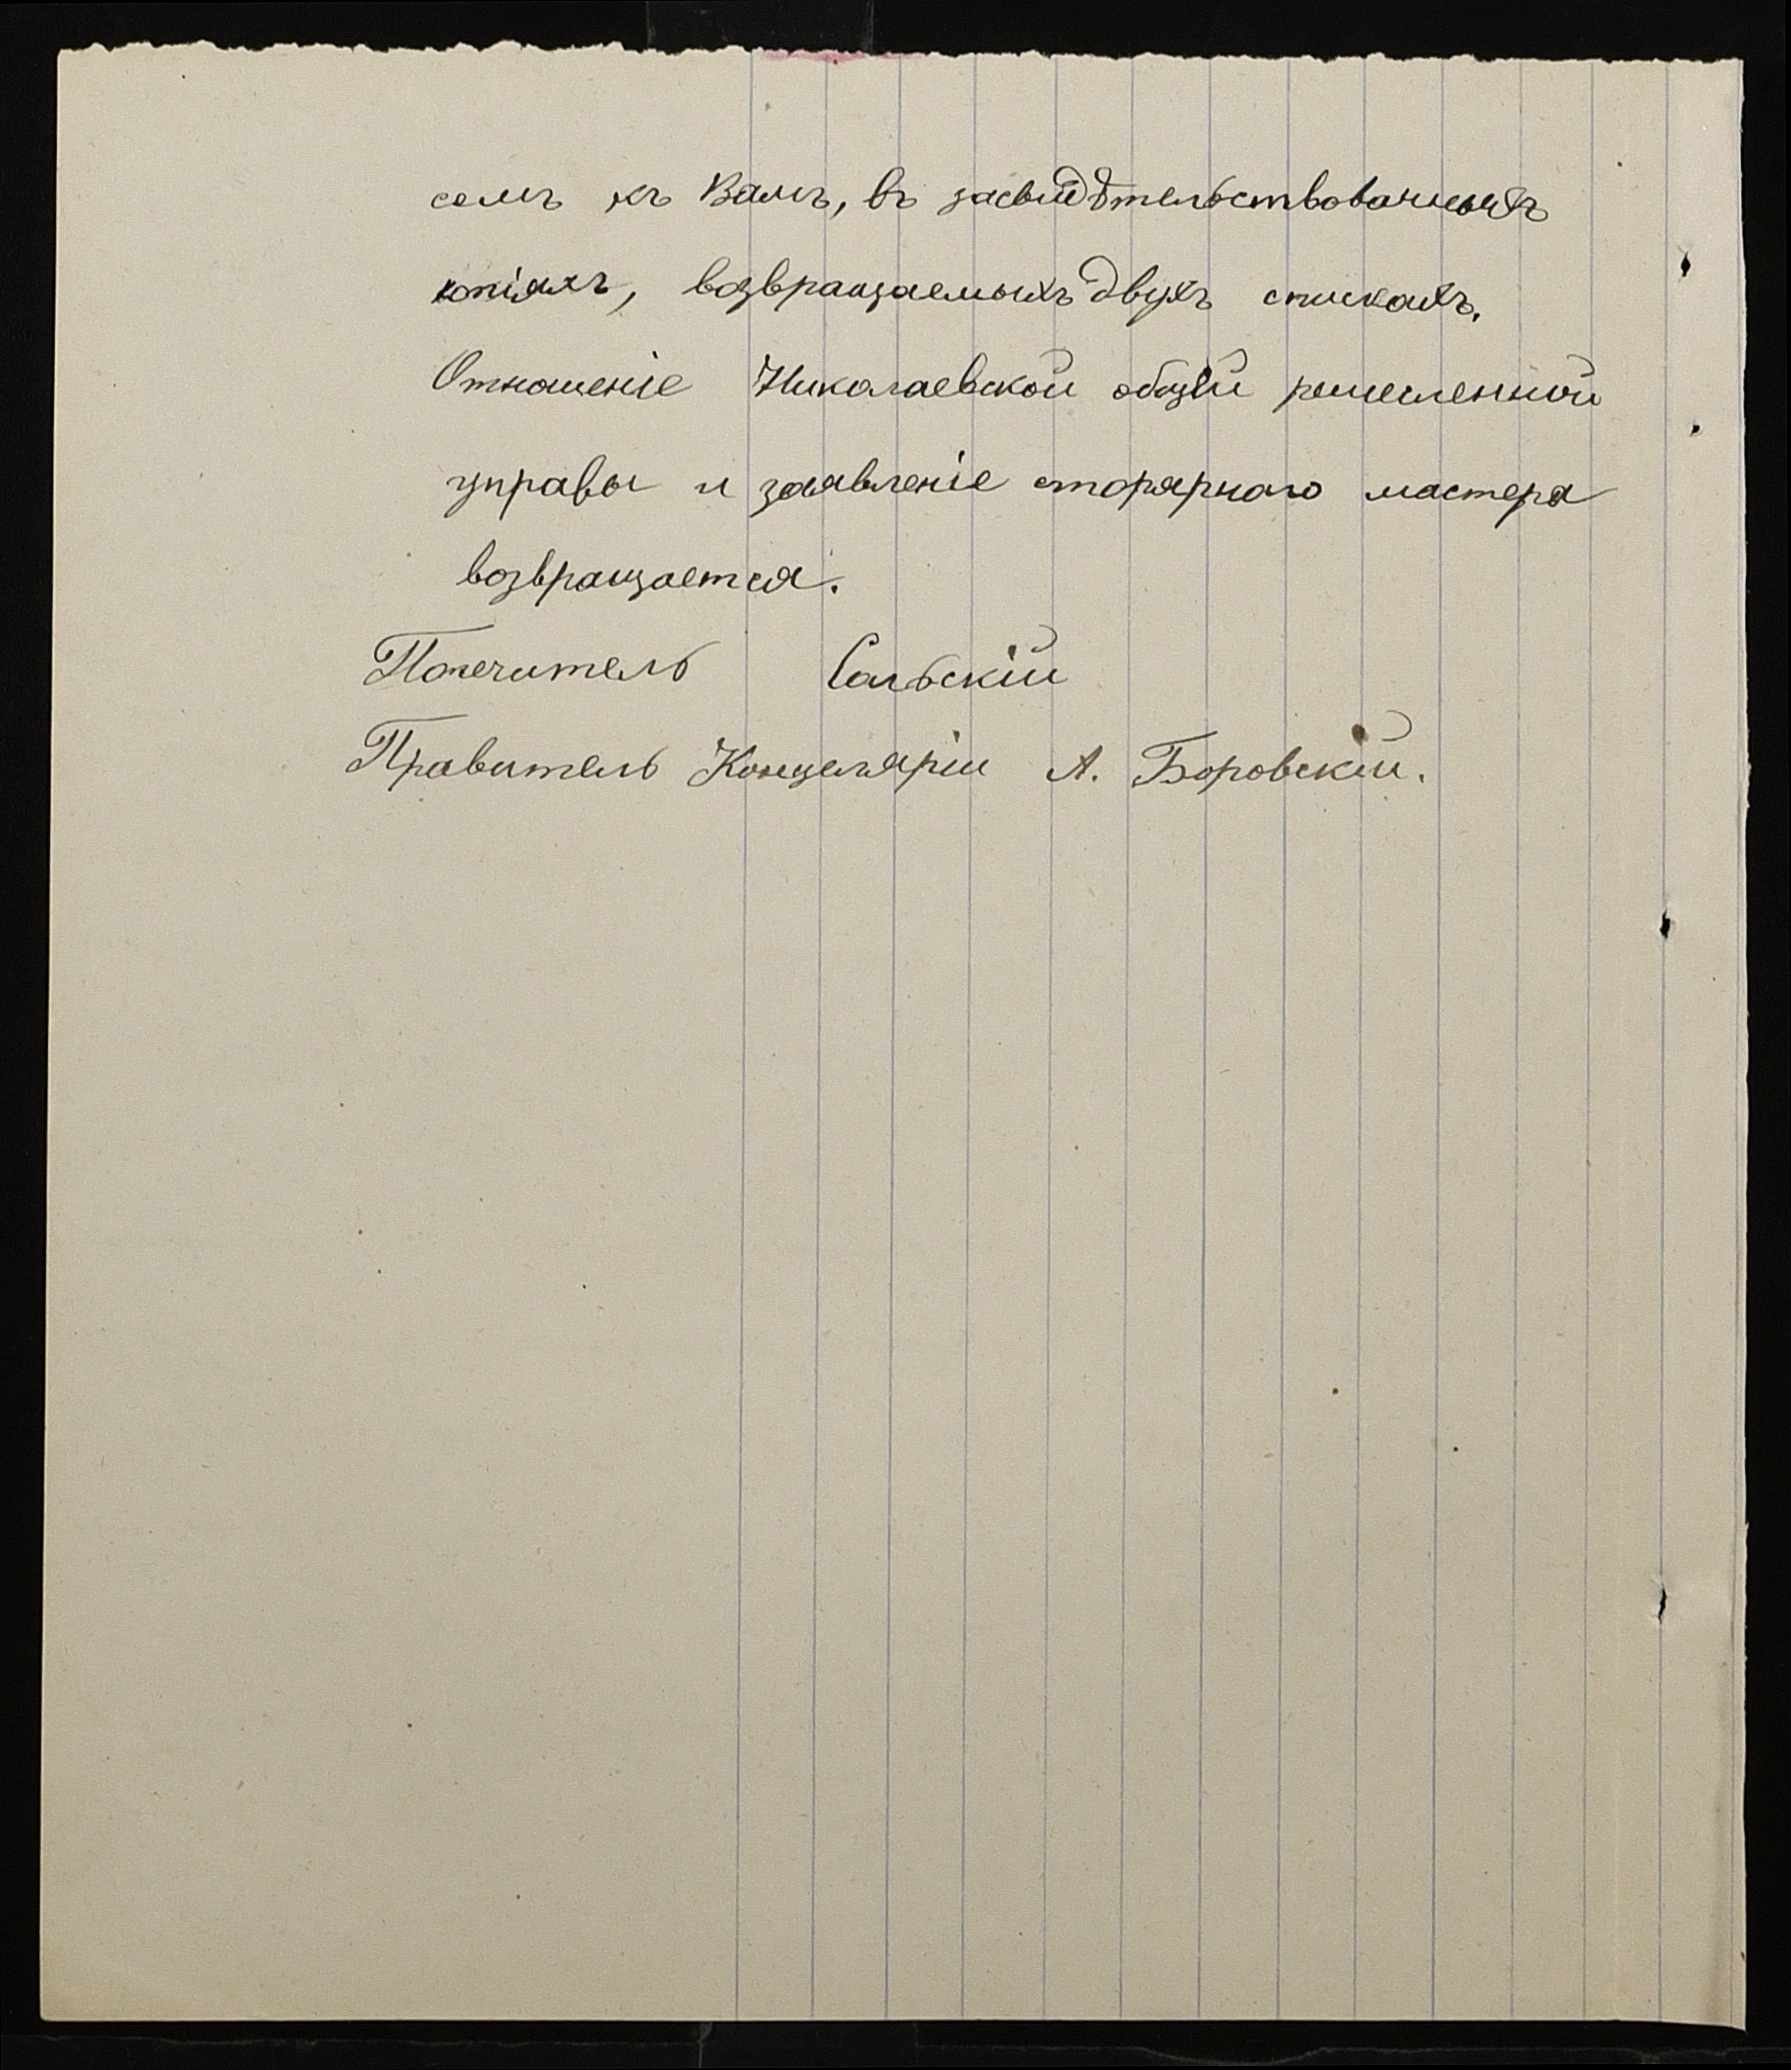 семъ къ Вамъ, въ засвидѣтельствованныхъ
копіяхъ, возвращаемыхъ двухъ спискахъ.
Отношеніе Николаевской общей ремесленной
управы и заявленіе сторярнаго мастера
возвращается.
Попечитель Сольскій
Правитель Канцеляріи А. Боровскій.